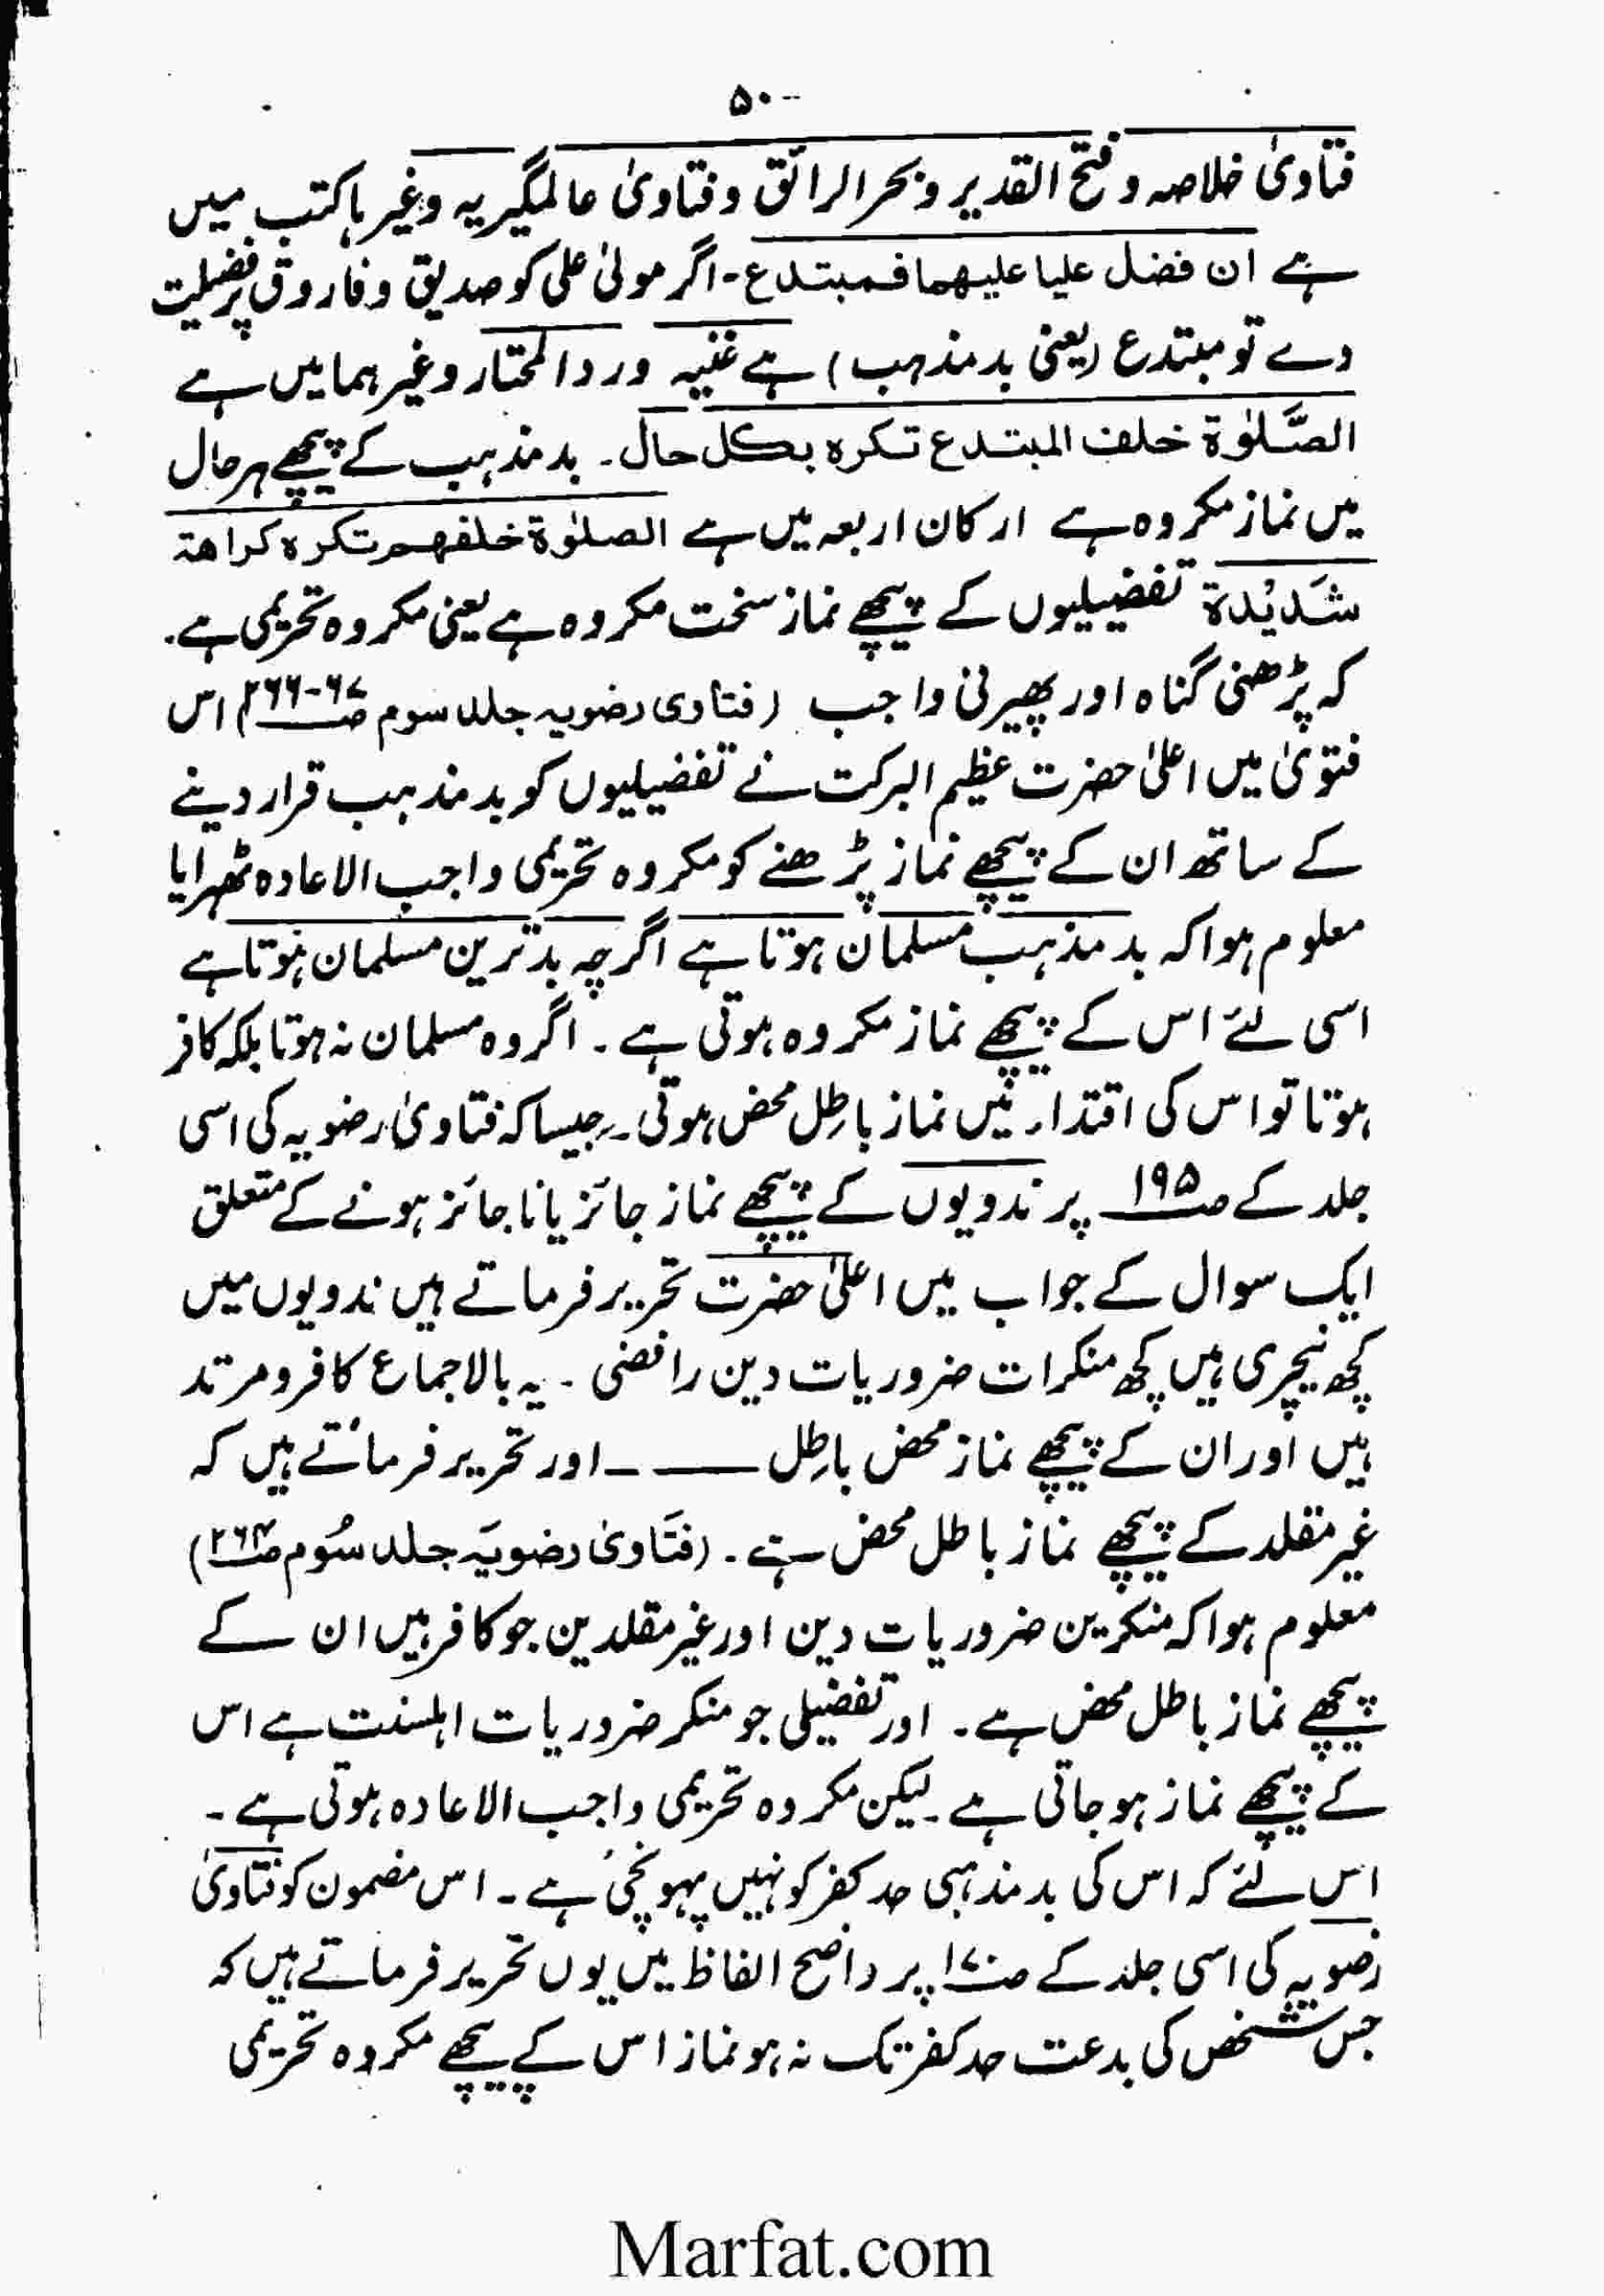 ۵۰--
فتاویٰ خلاصہ و فتح القدیر و بحر الرائق و فتاویٰ عالمگیریہ وغیرہا کتب میں
ہے ان فضل علیا علیھما فمبتدع - اگر مولیٰ علی کو صدیق و فاروق پر فضیلت
دے تو مبتدع (یعنی بد مذہب) ہے غنیہ و ردالمحتار وغیرہما میں ہے
الصَّلوٰۃ خلف المبتدع تکرہ بکل حال ۔ بد مذہب کے پیچھے ہر حال
میں نماز مکروہ ہے ارکان اربعہ میں ہے الصلوٰۃ خلفھم تکرہ کراھۃ
شَدیْدۃ تفضیلیوں کے پیچھے نماز سخت مکروہ ہے یعنی مکروہ تحریمی ہے ۔
کہ پڑھنی گناہ اور پھیرنی واجب (فتاوی رضویہ جلد سوم صـ ۶۷-۲۶۶) اس
فتویٰ میں اعلیٰ حضرت عظیم البرکت نے تفضیلیوں کو بد مذہب قرار دینے
کے ساتھ ان کے پیچھے نماز پڑھنے کو مکروہ تحریمی واجب الاعادہ ٹھہرایا
معلوم ہوا کہ بد مذہب مسلمان ہوتا ہے اگرچہ بدترین مسلمان ہوتا ہے
اسی لئے اس کے پیچھے نماز مکروہ ہوتی ہے ۔ اگر وہ مسلمان نہ ہوتا بلکہ کافر
ہوتا تو اس کی اقتدار میں نماز باطِل محض ہوتی ۔ جیسا کہ فتاویٰ رضویہ کی اسی
جلد کے صـ ۱۹۵ پر ندویوں کے پیچھے نماز جائز یا ناجائز ہونے کے متعلق
ایک سوال کے جواب میں اعلیٰ حضرت تحریر فرماتے ہیں ندویوں میں
کچھ نیچری ہیں کچھ منکرات ضروریات دین رافضی ۔ یہ بالاجماع کافر و مرتد
ہیں اور ان کے پیچھے نماز محض باطِل ــــــ ــ اور تحریر فرماتے ہیں کہ
غیر مقلد کے پیچھے نماز باطل محض ہے ۔ (فتَاویٰ رضویَہ جلد سُوم صـ ۲۶۴)
معلوم ہوا کہ منکرین ضروریات دین اور غیر مقلدین جو کافر ہیں ان کے
پیچھے نماز باطل محض ہے ۔ اور تفضیلی جو منکر ضروریات اہلسنت ہے اس
کے پیچھے نماز ہو جاتی ہے ۔ لیکن مکروہ تحریمی واجب الاعادہ ہوتی ہے ۔
اس لئے کہ اس کی بد مذہبی حد کفر کو نہیں پہونچی ہے ۔ اس مضمون کو فتاویٰ
رضویہ کی اسی جلد کے صـ ۱۷۰ پر واضح الفاظ میں یوں تحریر فرماتے ہیں کہ
جس شخص کی بدعت حد کفر تک نہ ہو نماز اس کے پیچھے مکروہ تحریمی
Marfat.com